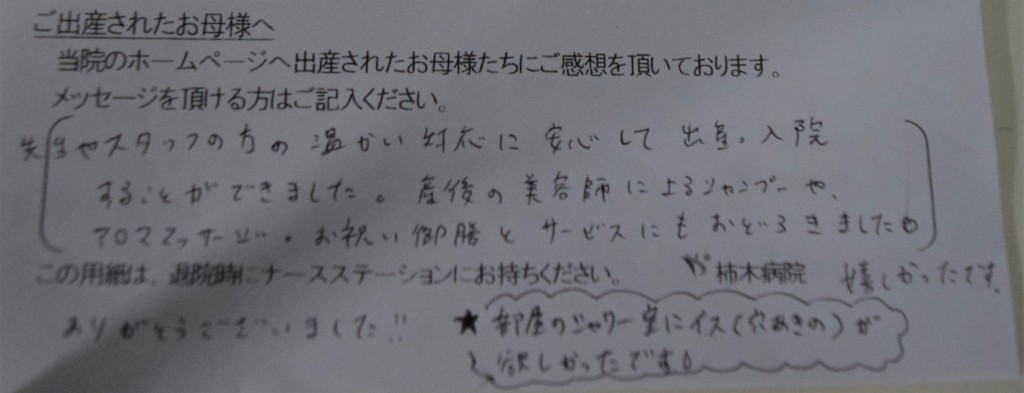 ご出産されたお母様へ
当院のホームページへ出産されたお母様たちにご感想を頂いております。
メッセージを頂ける方はご記入ください。
先生やスタッフの方の温かい対応に安心して出産、入院
することができました。産後の美容師によるシャンプーや、
アロママッサージ・お祝い御膳とサービスにもおどろきました
この用紙は、退院時にナースステーションにお持ちください。 柿木病院
嬉しかったです。
ありがとうございました!!
★部屋のシャワー室にイス(穴あきの)が
欲しかったです。